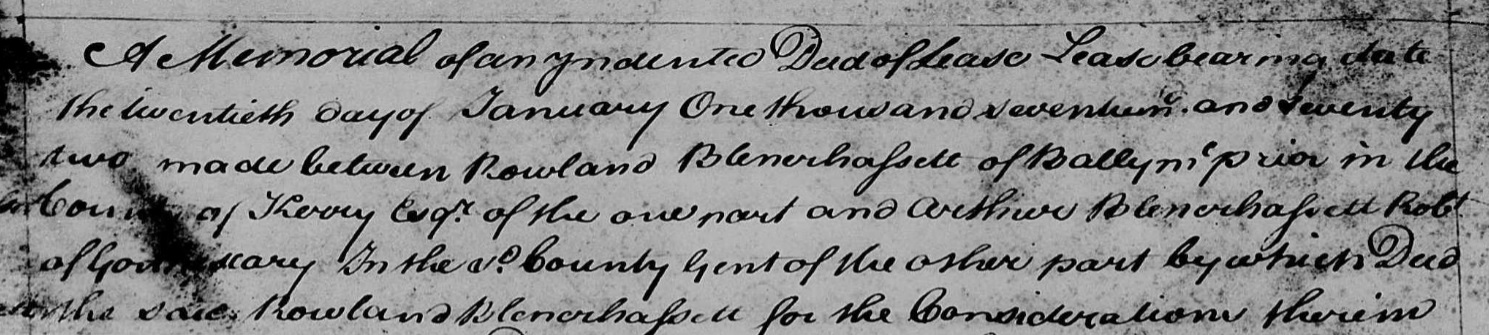 A Memorial of an Yndented Deed of Lease Lease bearing date
the twentieth day of January One thousand seven hund. and seventy
two made between Rowland Blenerhassett of Ballymcprior in the
County of Kerry Esqr. of the one part and Arthur Blenerhassett Robt
of In the sd. County Gent of the other part by which Deed
the said Rowland Blenerhassett for the Considerations therein